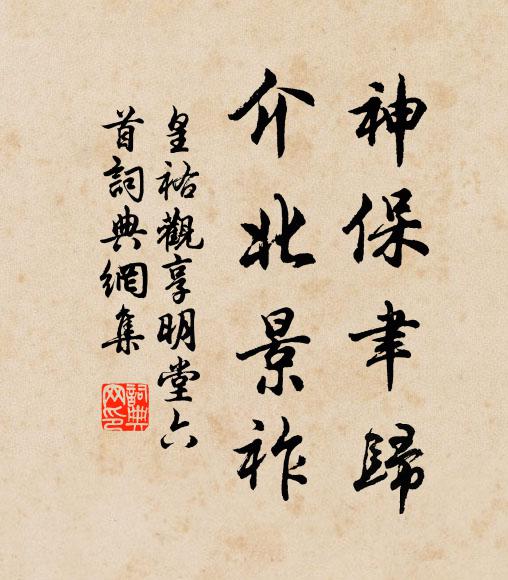 神保聿歸
介此景祚
皇祐親享明堂六
首詞典網集
詞典
网印